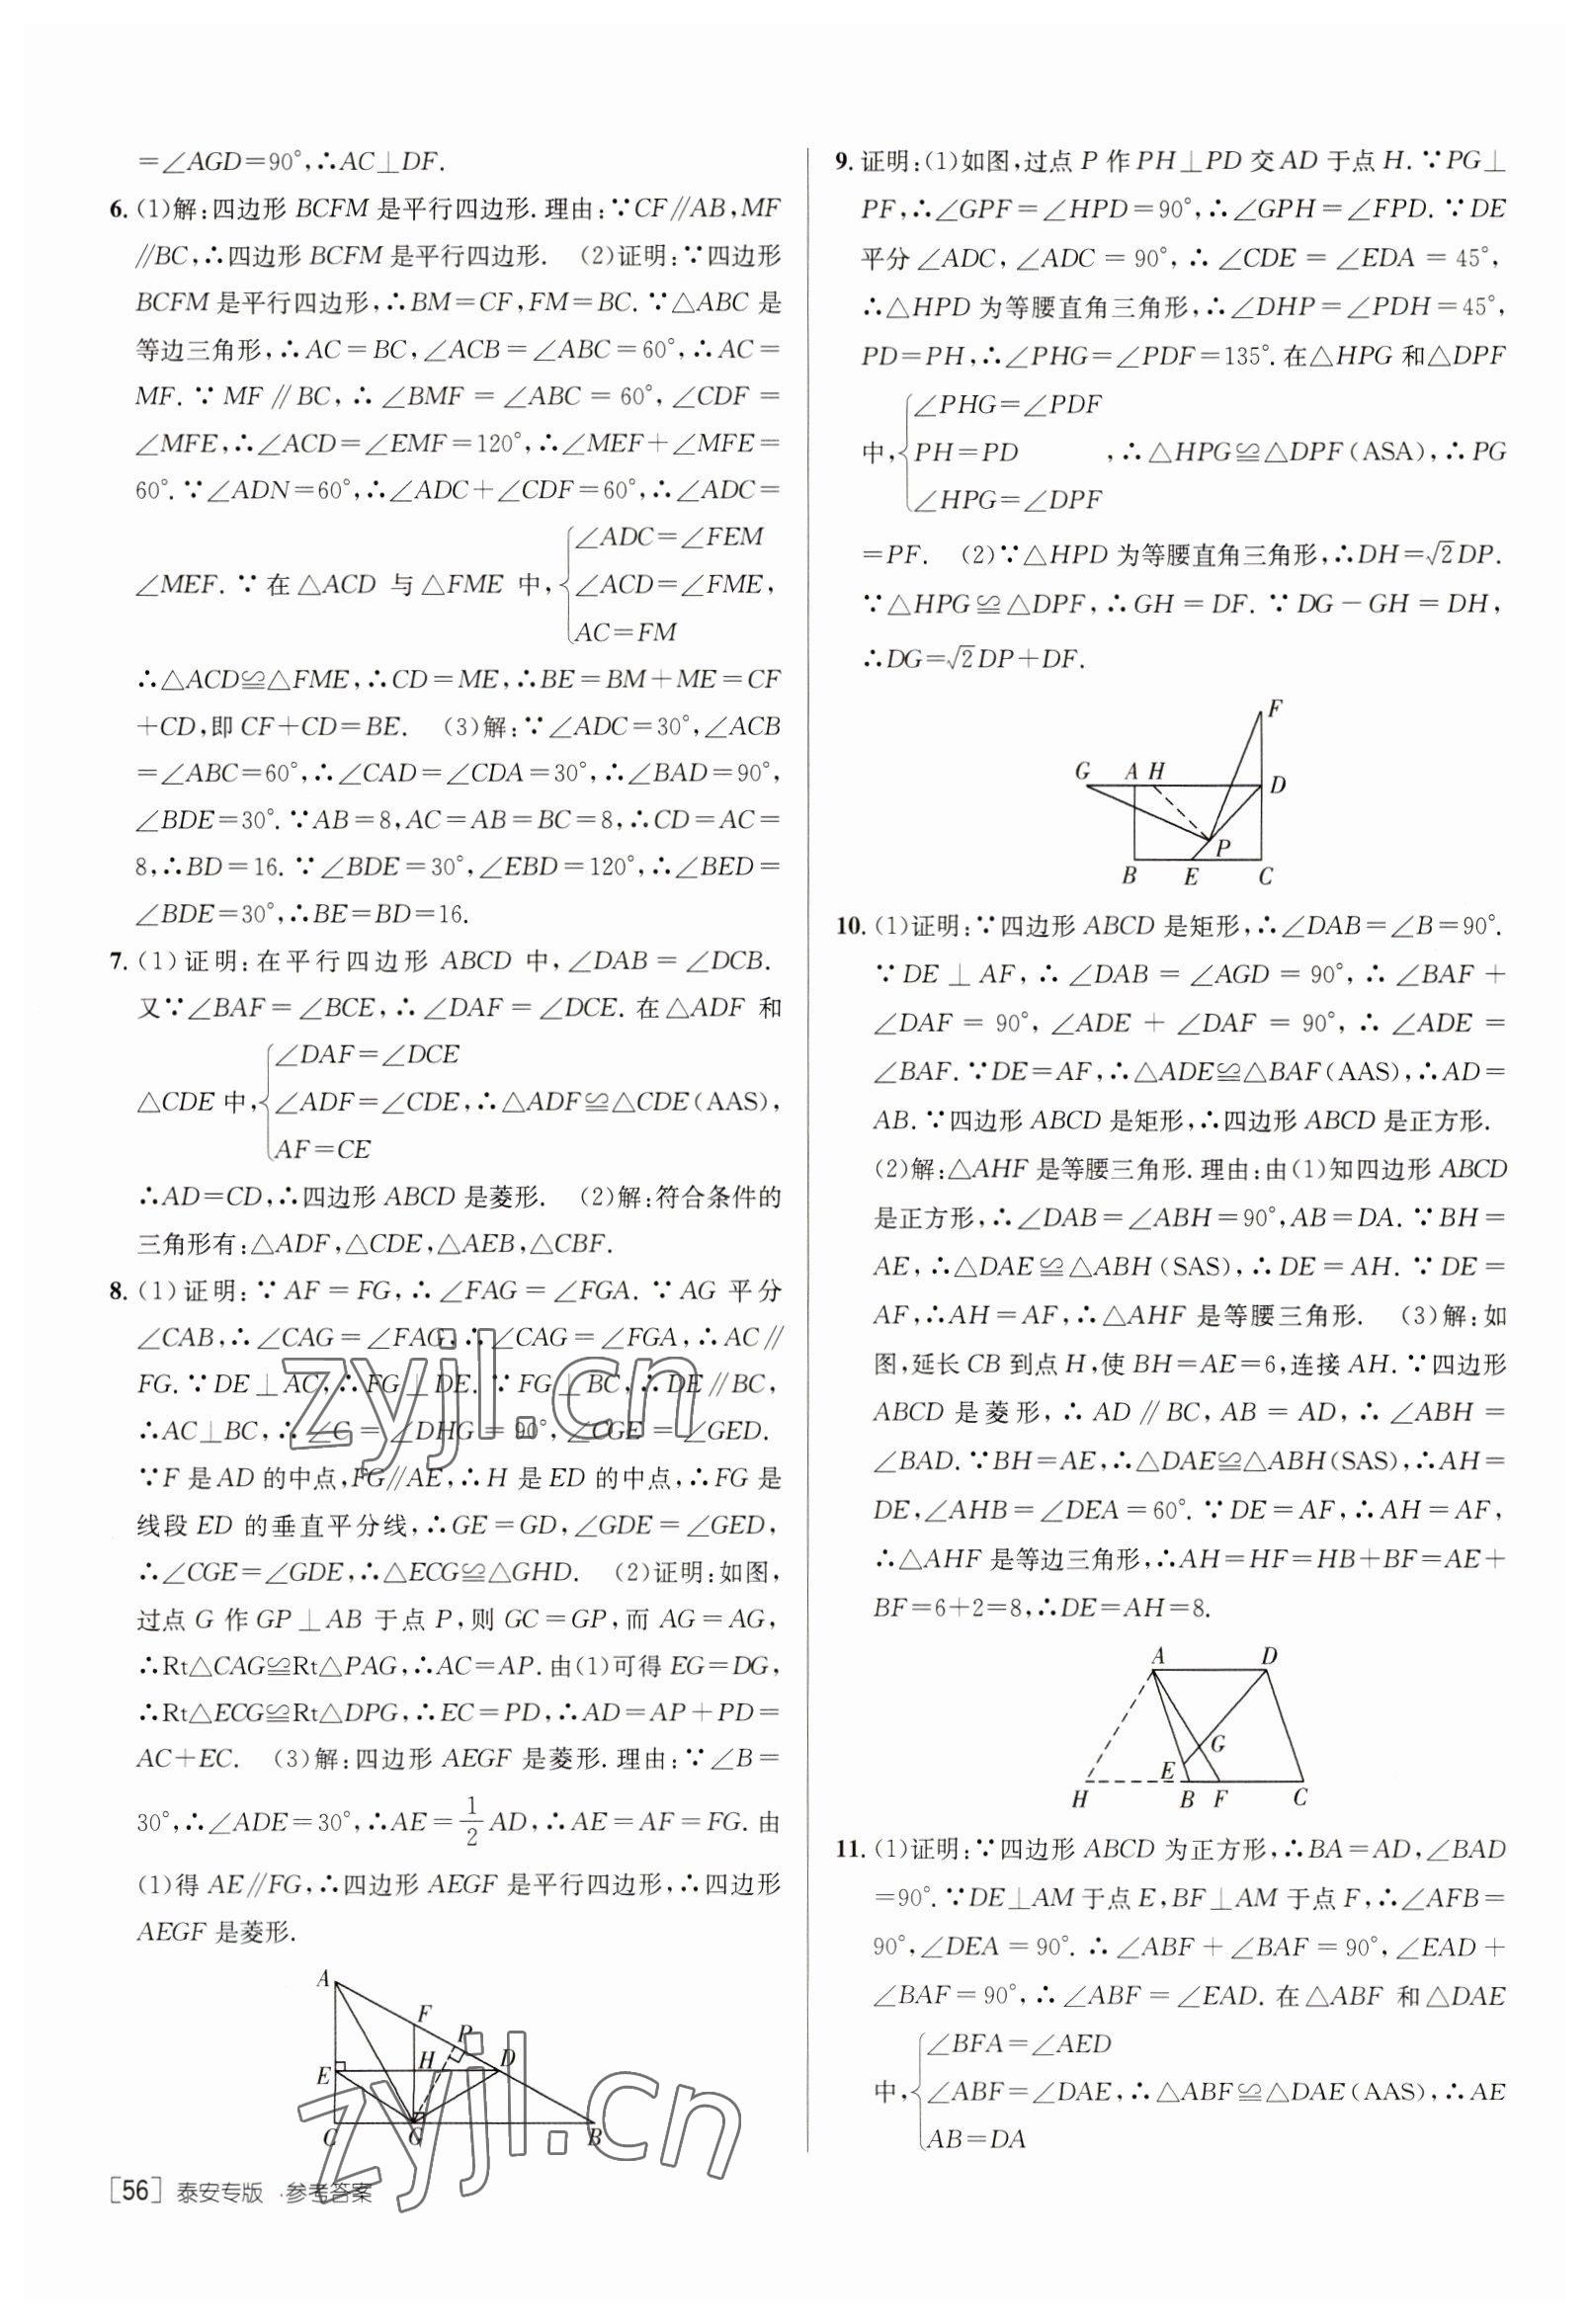 =∠AGD=90°,∴AC⊥DF.
6. (1)解:四边形 BCFM 是平行四边形.理由:∵CF∥AB,MF
∥BC,∴四边形 BCFM 是平行四边形. (2)证明:∵四边形
BCFM 是平行四边形,∴BM=CF,FM=BC.∵△ABC 是
等边三角形,∴AC=BC,∠ACB=∠ABC=60°,∴AC=
MF.∵MF∥BC,∴∠BMF=∠ABC=60°,∠CDF=
∠MFE,∴∠ACD=∠EMF=120°,∴∠MEF+∠MFE=
60°.∵∠ADN=60°,∴∠ADC+∠CDF=60°,∴∠ADC=
∠ADC=∠FEM
∠MEF.∵在△ACD 与△FME 中,{∠ACD=∠FME,
AC=FM
∴△ACD≌△FME,∴CD=ME,∴BE=BM+ME=CF
+CD,即 CF+CD=BE. (3)解:∵∠ADC=30°,∠ACB
=∠ABC=60°,∴∠CAD=∠CDA=30°,∴∠BAD=90°,
∠BDE=30°.∵AB=8,AC=AB=BC=8,∴CD=AC=
8,∴BD=16.∵∠BDE=30°,∠EBD=120°,∴∠BED=
∠BDE=30°,∴BE=BD=16.
7. (1)证明:在平行四边形 ABCD 中,∠DAB=∠DCB.
又∵∠BAF=∠BCE,∴∠DAF=∠DCE.在△ADF 和
∠DAF=∠DCE
△CDE 中,{∠ADF=∠CDE,∴△ADF≌△CDE(AAS),
AF=CE
∴AD=CD,∴四边形 ABCD 是菱形. (2)解:符合条件的
三角形有:△ADF,△CDE,△AEB,△CBF.
8. (1)证明:∵AF=FG,∴∠FAG=∠FGA.∵AG 平分
∠CAB,∴∠CAG=∠FAG,∴∠CAG=∠FGA,∴AC∥
FG.∵DE⊥AC,∴FG⊥DE.∵FG⊥BC,∴DE∥BC,
∴AC⊥BC,∴∠C=∠DHG=90°,∠CGE=∠GED.
∵F 是 AD 的中点,FG∥AE,∴H 是 ED 的中点,∴FG 是
线段 ED 的垂直平分线,∴GE=GD,∠GDE=∠GED,
∴∠CGE=∠GDE,∴△ECG≌△GHD. (2)证明:如图,
过点 G 作 GP⊥AB 于点 P,则 GC=GP,而 AG=AG,
∴Rt△CAG≌Rt△PAG,∴AC=AP.由(1)可得 EG=DG,
∴Rt△ECG≌Rt△DPG,∴EC=PD,∴AD=AP+PD=
AC+EC. (3)解:四边形 AEGF 是菱形.理由:∵∠B=
30°,∴∠ADE=30°,∴AE=1/2 AD,∴AE=AF=FG.由
(1)得 AE∥FG,∴四边形 AEGF 是平行四边形,∴四边形
AEGF 是菱形.
A
F
P
E H D
C G B
[56] 泰安专版·参考答案
9. 证明:(1)如图,过点 P 作 PH⊥PD 交 AD 于点 H.∵PG⊥
PF,∴∠GPF=∠HPD=90°,∴∠GPH=∠FPD.∵DE
平分∠ADC,∠ADC=90°,∴∠CDE=∠EDA=45°,
∴△HPD 为等腰直角三角形,∴∠DHP=∠PDH=45°,
PD=PH,∴∠PHG=∠PDF=135°.在△HPG 和△DPF
∠PHG=∠PDF
中,{PH=PD ,∴△HPG≌△DPF(ASA),∴PG
∠HPG=∠DPF
=PF. (2)∵△HPD 为等腰直角三角形,∴DH=√2DP.
∵△HPG≌△DPF,∴GH=DF.∵DG-GH=DH,
∴DG=√2DP+DF.
F
G A H D
P
B E C
10. (1)证明:∵四边形 ABCD 是矩形,∴∠DAB=∠B=90°.
∵DE⊥AF,∴∠DAB=∠AGD=90°,∴∠BAF+
∠DAF=90°,∠ADE+∠DAF=90°,∴∠ADE=
∠BAF.∵DE=AF,∴△ADE≌△BAF(AAS),∴AD=
AB.∵四边形 ABCD 是矩形,∴四边形 ABCD 是正方形.
(2)解:△AHF 是等腰三角形.理由:由(1)知四边形 ABCD
是正方形,∴∠DAB=∠ABH=90°,AB=DA.∵BH=
AE,∴△DAE≌△ABH(SAS),∴DE=AH.∵DE=
AF,∴AH=AF,∴△AHF 是等腰三角形. (3)解:如
图,延长 CB 到点 H,使 BH=AE=6,连接 AH.∵四边形
ABCD 是菱形,∴AD∥BC,AB=AD,∴∠ABH=
∠BAD.∵BH=AE,∴△DAE≌△ABH(SAS),∴AH=
DE,∠AHB=∠DEA=60°.∵DE=AF,∴AH=AF,
∴△AHF 是等边三角形,∴AH=HF=HB+BF=AE+
BF=6+2=8,∴DE=AH=8.
A D
G
E
H B F C
11. (1)证明:∵四边形 ABCD 为正方形,∴BA=AD,∠BAD
=90°.∵DE⊥AM 于点 E,BF⊥AM 于点 F,∴∠AFB=
90°,∠DEA=90°.∴∠ABF+∠BAF=90°,∠EAD+
∠BAF=90°,∴∠ABF=∠EAD.在△ABF 和△DAE
∠BFA=∠AED
中,{∠ABF=∠DAE,∴△ABF≌△DAE(AAS),∴AE
AB=DA
zyjl.cn
zyjl.cn